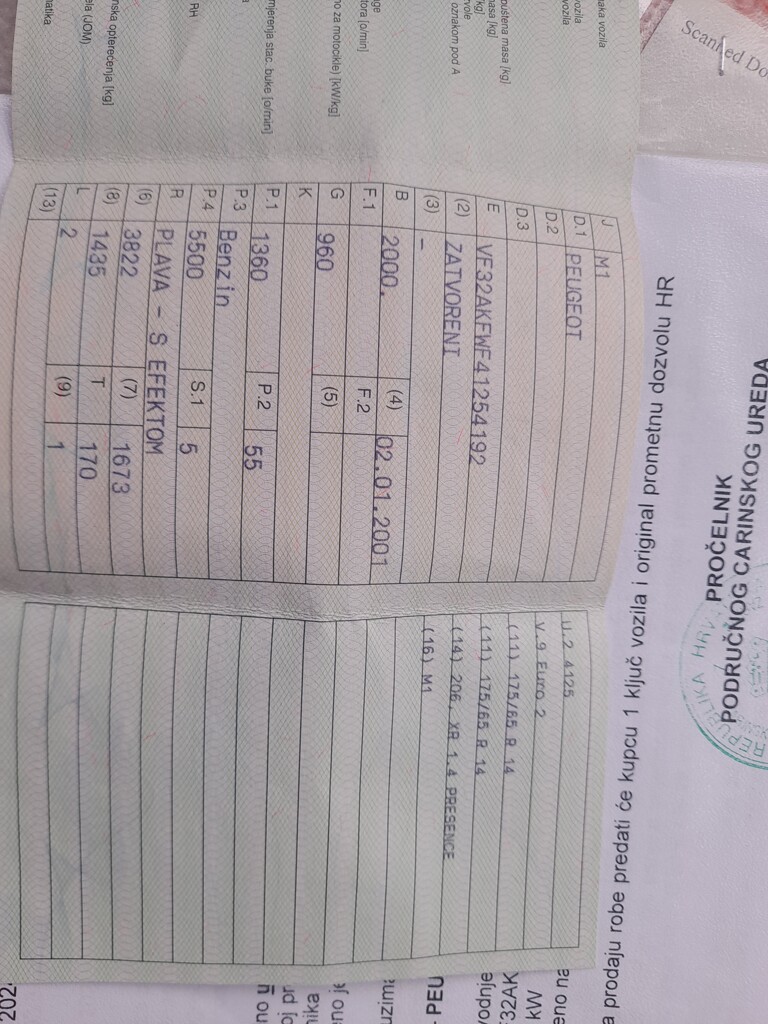 Scanned Do
aka vozila
vozila
vozila
puštena masa [kg]
masa [kg]
[kg]
vrole
oznakom pod A
tora [o/min]
no za motocikle) [kW/kg]
mjerenja stac. buke [o/min]
RH
nska opterećenja [kg]
ela (JOM)
matika
J M1
D.1 PEUGEOT
D.2
D.3
E VF32AKFWF41254192
(2) ZATVORENI
(3) -
B 2000. (4) 02.01.2001
F.1 F.2
G 960 (5)
K
P.1 1360 P.2 55
P.3 Benzin
P.4 5500 S.1 5
R PLAVA - S EFEKTOM
(6) 3822 (7) 1673
(8) 1435 T 170
L 2 (9) 1
(13)
U.2 4125
V.9 Euro 2
(11) 175/65 R 14
(11) 175/65 R 14
(14) 206, XR 1.4 PRESENCE
(16) M1
a prodaju robe predati će kupcu 1 ključ vozila i original prometnu dozvolu HR
PROČELNIK
PODRUČNOG CARINSKOG UREDA
REPUBLIKA HRV
eno na
kW
F32AK
vodnje
- PEU
uzima
eno je
nika
oj pr
no u
202